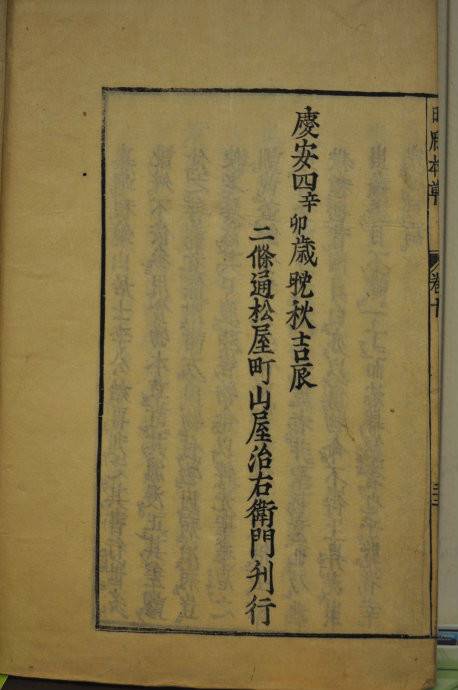 慶安四辛卯歳晩秋吉辰
二條通松屋町山屋治右衛門刊行
日用本草
卷十